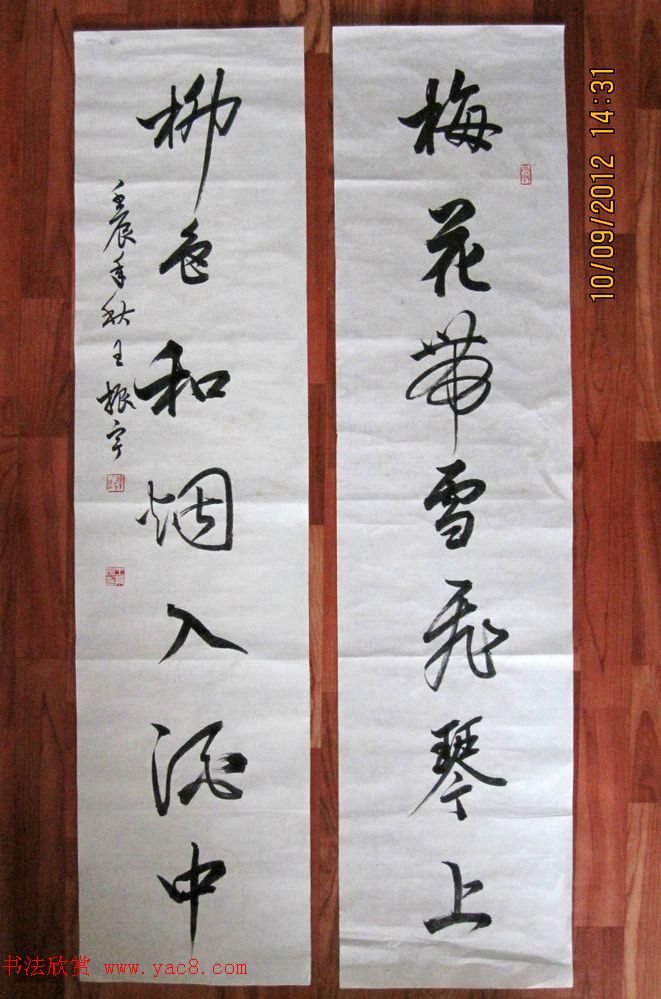 梅花带雪飛琴上
柳色和烟入酒中
壬辰年秋王振宇
10/09/2012 14:31
书法欣赏 www.yac8.com